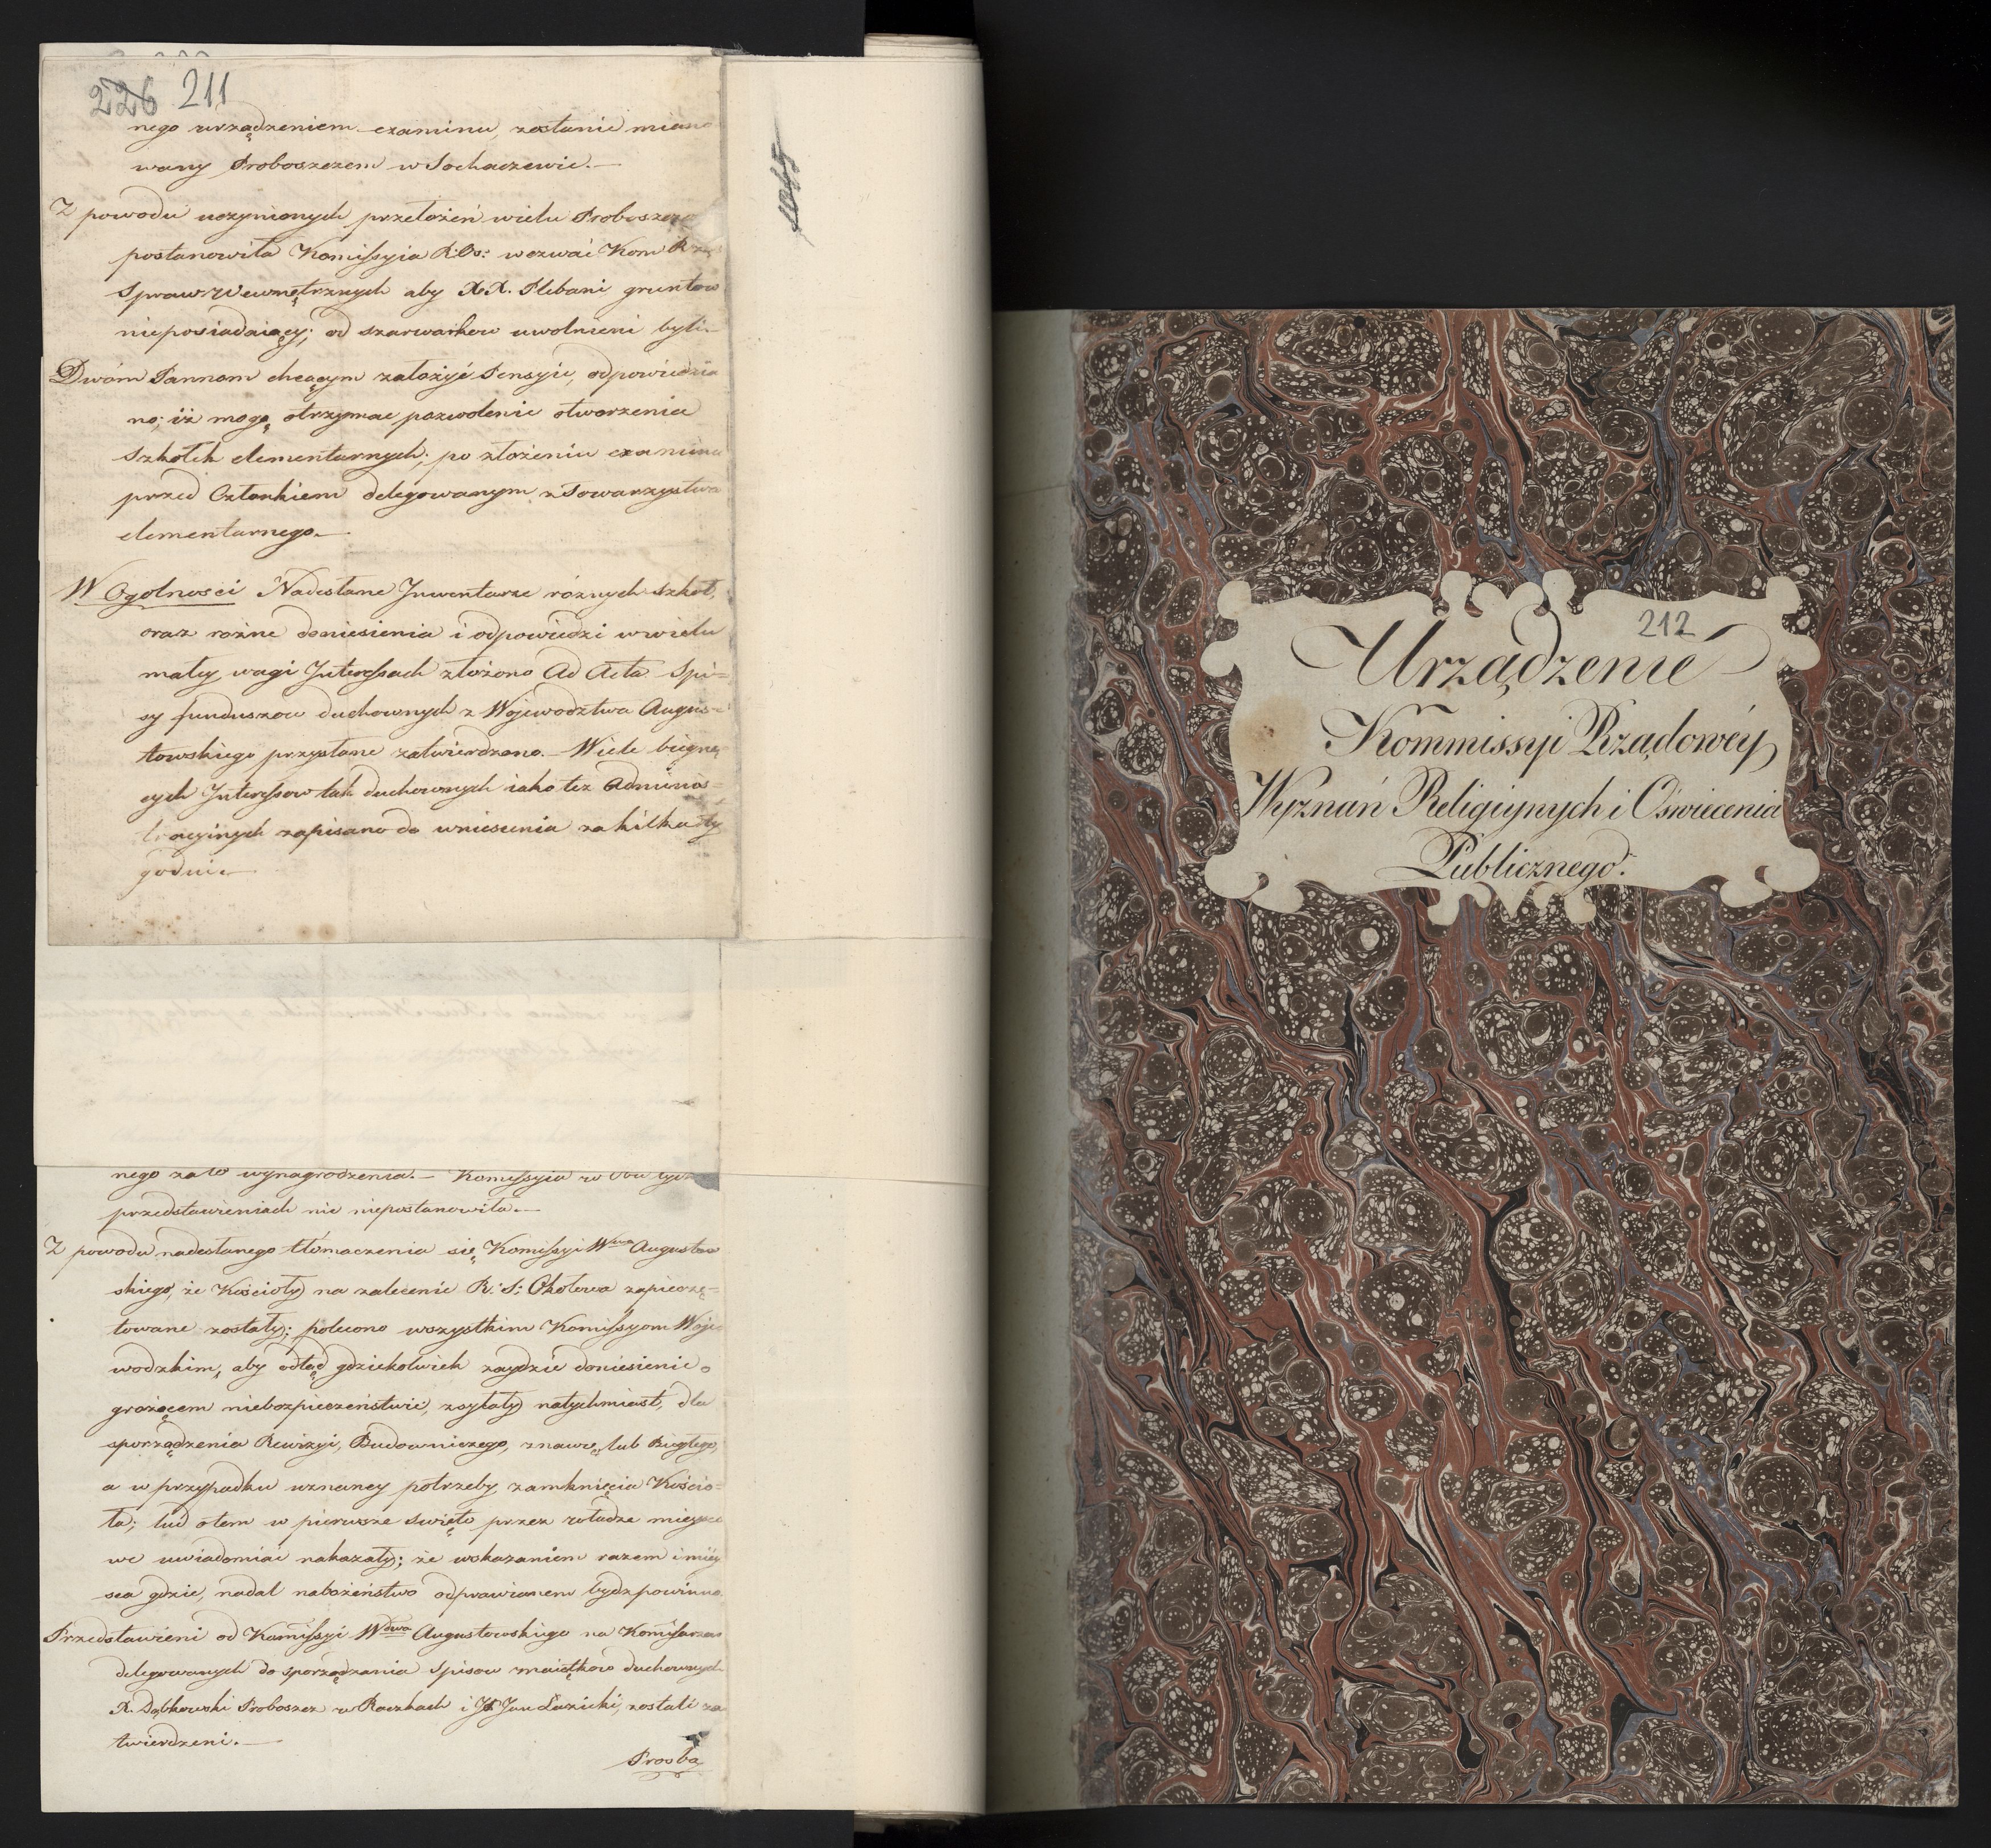 226 211
nego urządzeniem examinu, zostanie miano
wany Proboszczem w Sochaczewie.—
Z powodu uczynionych przełożeń wielu Proboszcz
postanowiła Komissyia R: Os: wezwać Kom Rz
Spraw Wewnętrznych aby XX. Plebani gruntow
nieposiadaiący; od szarwarkow uwolnieni byli.—
Dwóm Pannom chcącym założyć Pensyie, odpowiedzia
no; iż mogą otrzymac pozwolenie otworzenia
Szkołek elementarnych; po złożeniu examinu
przed Członkiem delegowanym z Towarzystwa
elementarnego.—
W Ogolnosci Nadesłane Jnwentarze róznych szkół,
oraz rożne doniesienia i odpowiedzi w wielu
małey wagi Jnteressach złożono Ad Acta Spi=
sy funduszow duchownych z Wojewodztwa Augus=
towskiego przysłane zatwierdzono.— Wiele biegną
cych Jnteressow tak duchownych iako tez Adminis=
tracyinych zapisano do wniesienia za kilka ty
godni.—
nego za to wynagrodzenia.— Komissyia w Obu tych
przedstawieniach nic niepostanowiła.—
Z powodu nadesłanego tłómaczenia się Komissyi Wdwa Augustow
skiego, że Kościoły na zalecenie R: S: Okolowa zapieczę=
towane zostały; polecono wszystkim Komissyom Woje
wodzkim, aby odtąd gdziekolwiek zaydzie doniesienie o
grożącem niebezpieczeństwie, zsyłały natychmiast, dla
sporządzenia Rewizyi, Budowniczego, znawcę lub Biegłego,
a w przypadku uznaney potrzeby zamknięcia Kościo=
ła; lud o tem w pierwsze święto przez władze mieysco
we uwiadomiać nakazały; ze wskazaniem razem i miey
sca gdzie, nadal nabożeństwo odprawianem bydz powinno.
Przedstawieni od Komissyi Wdwa Augustowskiego na Komissarzow
delegowanych do sporządzania Spisow maiątków duchownych
X. Dąbkowski Proboszcz w Raczkach i Jan Łazicki, zostali za
twierdzeni.—
Prosba
212
Urządzenie
Kommissyi Rządowéy
Wyznań Religiynych i Oświecenia
Publicznego.